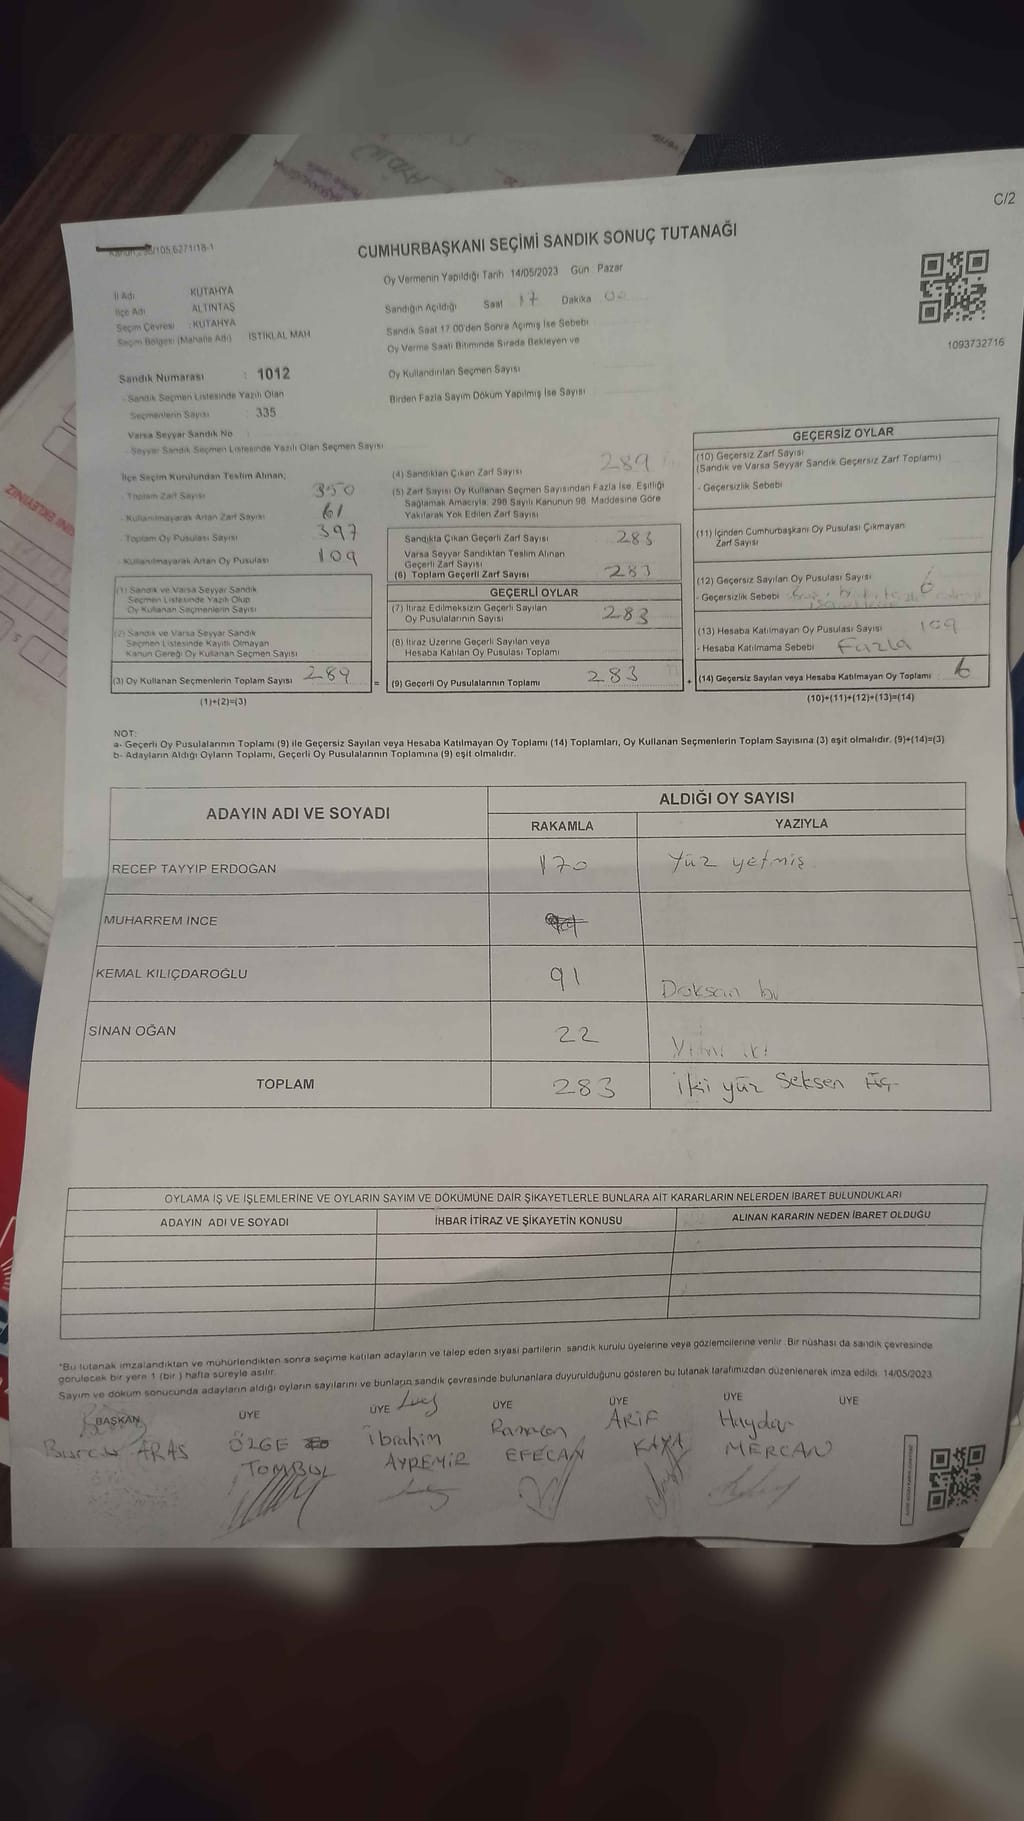 C/2
CUMHURBAŞKANI SEÇİMİ SANDIK SONUÇ TUTANAĞI
Oy Vermenin Yapıldığı Tarih 14/05/2023 Gün Pazar
İl Adı KÜTAHYA
İlçe Adı ALTINTAŞ
Seçim Çevresi : KÜTAHYA
Seçim Bölgesi (Mahalle Adı) İSTİKLAL MAH
Sandık Numarası : 1012
- Sandık Seçmen Listesinde Yazılı Olan
Seçmenlerin Sayısı : 335
Varsa Seyyar Sandık No
- Seyyar Sandık Seçmen Listesinde Yazılı Olan Seçmen Sayısı
Sandığın Açıldığı Saat 17 Dakika 00
Sandık Saat 17.00'den Sonra Açılmış İse Sebebi
Oy Verme Saati Bitiminde Sırada Bekleyen ve
Oy Kullandırılan Seçmen Sayısı
Birden Fazla Sayım Döküm Yapılmış İse Sayısı
1093732716
İlçe Seçim Kurulundan Teslim Alınan;
- Toplam Zarf Sayısı 350
- Kullanılmayarak Artan Zarf Sayısı 61
- Toplam Oy Pusulası Sayısı 397
- Kullanılmayarak Artan Oy Pusulası 109
(1) Sandık ve Varsa Seyyar Sandık
Seçmen Listesinde Yazılı Olup
Oy Kullanan Seçmenlerin Sayısı
(2) Sandık ve Varsa Seyyar Sandık
Seçmen Listesinde Kayıtlı Olmayan
Kanun Gereği Oy Kullanan Seçmen Sayısı
(3) Oy Kullanan Seçmenlerin Toplam Sayısı 289 =
(1)+(2)=(3)
(4) Sandıktan Çıkan Zarf Sayısı 289
(5) Zarf Sayısı Oy Kullanan Seçmen Sayısından Fazla İse, Eşitliği
Sağlamak Amacıyla; 298 Sayılı Kanunun 98. Maddesine Göre
Yakılarak Yok Edilen Zarf Sayısı
Sandıkta Çıkan Geçerli Zarf Sayısı 283
Varsa Seyyar Sandıktan Teslim Alınan
Geçerli Zarf Sayısı
(6) Toplam Geçerli Zarf Sayısı 283
GEÇERLİ OYLAR
(7) İtiraz Edilmeksizin Geçerli Sayılan
Oy Pusulalarının Sayısı 283
(8) İtiraz Üzerine Geçerli Sayılan veya
Hesaba Katılan Oy Pusulası Toplamı
(9) Geçerli Oy Pusulalarının Toplamı 283 +
GEÇERSİZ OYLAR
(10) Geçersiz Zarf Sayısı
(Sandık ve Varsa Seyyar Sandık Geçersiz Zarf Toplamı)
- Geçersizlik Sebebi
(11) İçinden Cumhurbaşkanı Oy Pusulası Çıkmayan
Zarf Sayısı
(12) Geçersiz Sayılan Oy Pusulası Sayısı 6
- Geçersizlik Sebebi
(13) Hesaba Katılmayan Oy Pusulası Sayısı 109
- Hesaba Katılmama Sebebi Fazla
(14) Geçersiz Sayılan veya Hesaba Katılmayan Oy Toplamı 6
(10)+(11)+(12)+(13)=(14)
NOT:
a- Geçerli Oy Pusulalarının Toplamı (9) ile Geçersiz Sayılan veya Hesaba Katılmayan Oy Toplamı (14) Toplamları, Oy Kullanan Seçmenlerin Toplam Sayısına (3) eşit olmalıdır. (9)+(14)=(3)
b- Adayların Aldığı Oyların Toplamı, Geçerli Oy Pusulalarının Toplamına (9) eşit olmalıdır.
ADAYIN ADI VE SOYADI ALDIĞI OY SAYISI
RAKAMLA YAZIYLA
RECEP TAYYİP ERDOĞAN 170 Yüz yetmiş
MUHARREM İNCE
KEMAL KILIÇDAROĞLU 91 Doksan bir
SİNAN OĞAN 22 Yirmi iki
TOPLAM 283 iki yüz Seksen üç
OYLAMA İŞ VE İŞLEMLERİNE VE OYLARIN SAYIM VE DÖKÜMÜNE DAİR ŞİKAYETLERLE BUNLARA AİT KARARLARIN NELERDEN İBARET BULUNDUKLARI
ADAYIN ADI VE SOYADI İHBAR İTİRAZ VE ŞİKAYETİN KONUSU ALINAN KARARIN NEDEN İBARET OLDUĞU
*Bu tutanak imzalandıktan ve mühürlendikten sonra seçime katılan adayların ve talep eden siyasi partilerin sandık kurulu üyelerine veya gözlemcilerine verilir. Bir nüshası da sandık çevresinde
görülecek bir yere 1 (bir) hafta süreyle asılır.
Sayım ve döküm sonucunda adayların aldığı oyların sayılarını ve bunların sandık çevresinde bulunanlara duyurulduğunu gösteren bu tutanak tarafımızdan düzenlenerek imza edildi. 14/05/2023
BAŞKAN ÜYE ÜYE ÜYE ÜYE ÜYE ÜYE
Burcu ARAS ÖZGE TOMBUL İbrahim AYDEMİR Ramazan EFECAN ARİF KAYA Haydar MERCAN